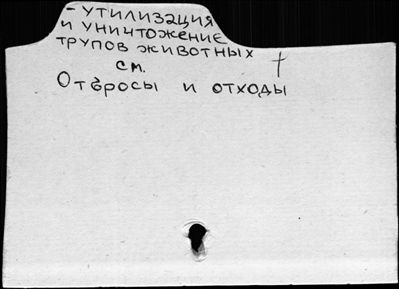 - утилизация
и уничтожение
трупов животных
см.
Отбросы и отходы